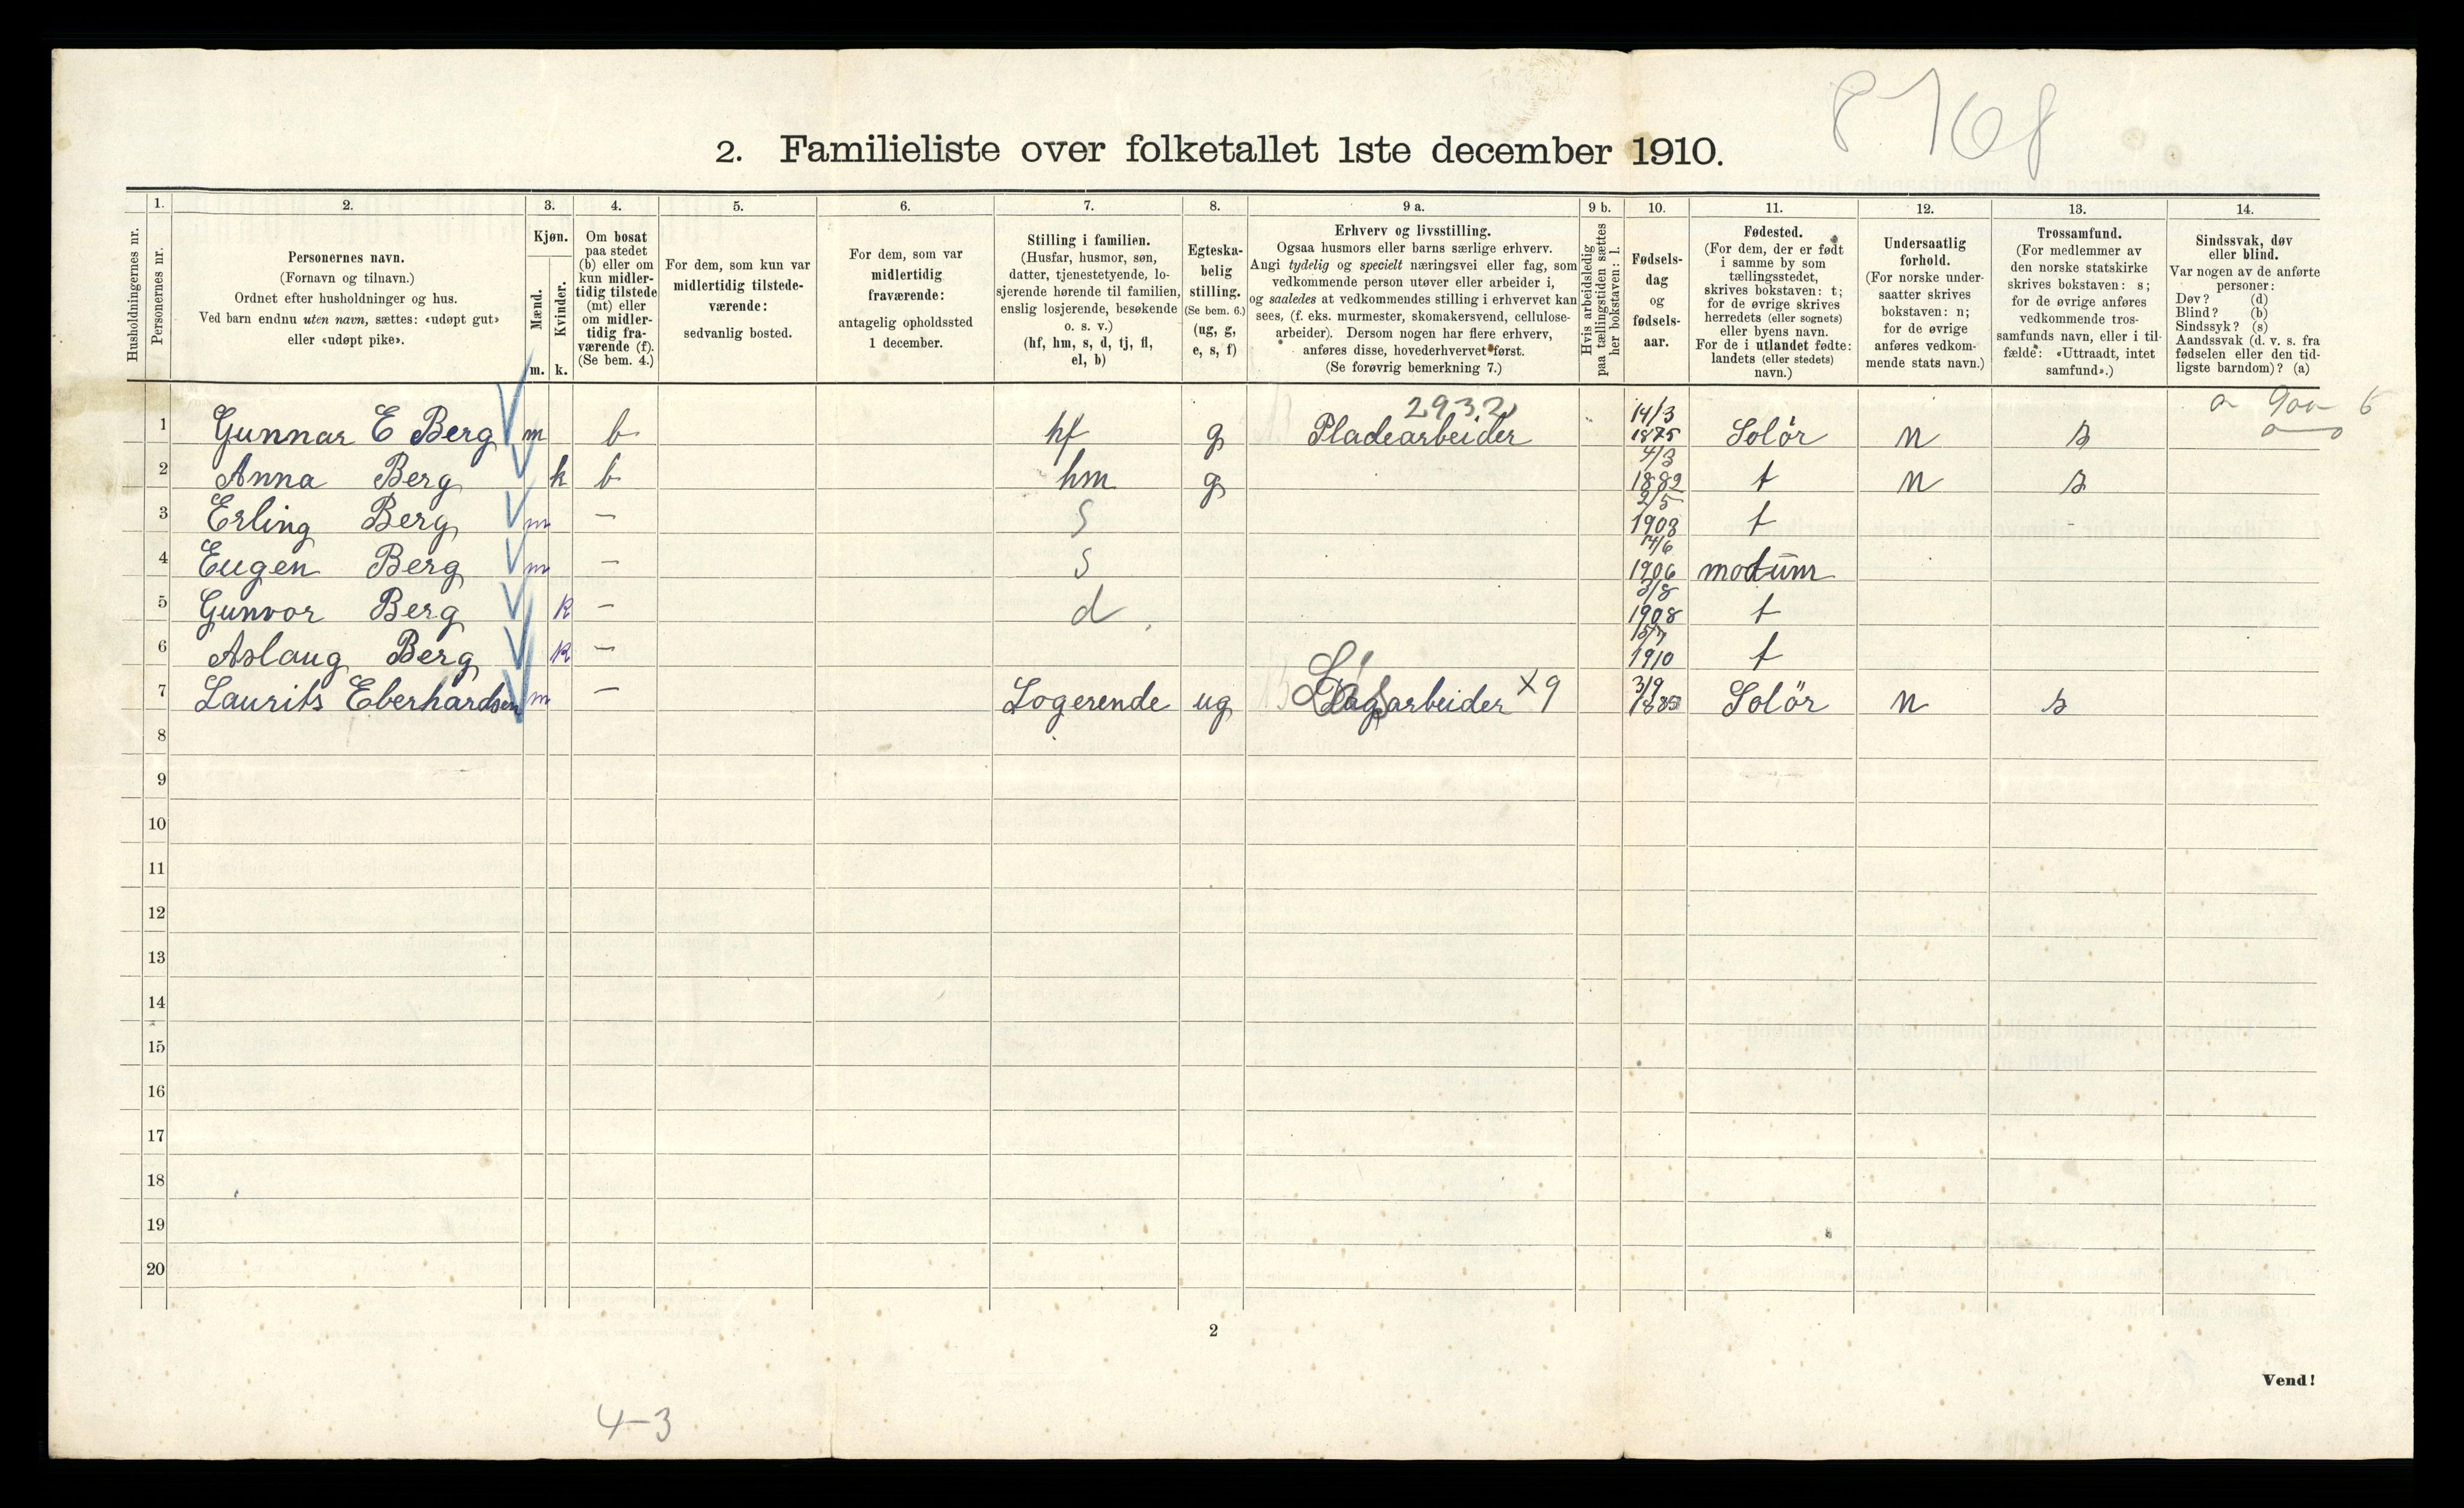 8768
2. Familieliste over folketallet 1ste december 1910.
Husholdningernes nr.
1.
Personernes nr.
2.
Personernes navn.
(Fornavn og tilnavn.)
Ordnet efter husholdninger og hus.
Ved barn endnu uten navn, sættes: «udøpt gut»
eller «udøpt pike».
3.
Kjøn.
Mænd.
Kvinder.
m.
k.
4.
Om bosat
paa stedet
(b) eller om
kun midler-
tidig tilstede
(mt) eller
om midler-
tidig fra-
værende (f).
(Se bem. 4.)
5.
For dem, som kun var
midlertidig tilstede-
værende:
sedvanlig bosted.
6.
For dem, som var
midlertidig
fraværende:
antagelig opholdssted
1 december.
7.
Stilling i familien.
(Husfar, husmor, søn,
datter, tjenestetyende, lo-
sjerende hørende til familien,
enslig losjerende, besøkende
o. s. v.)
(hf, hm, s, d, tj, fl,
el, b)
8.
Egteska-
belig
stilling.
(Se bem. 6.)
(ug, g,
e, s, f)
9 a.
Erhverv og livsstilling.
Ogsaa husmors eller barns særlige erhverv.
Angi tydelig og specielt næringsvei eller fag, som
vedkommende person utøver eller arbeider i,
og saaledes at vedkommendes stilling i erhvervet kan
sees, (f. eks. murmester, skomakersvend, cellulose-
arbeider). Dersom nogen har flere erhverv,
anføres disse, hovederhvervet først.
(Se forøvrig bemerkning 7.)
9 b.
Hvis arbeidsledig
paa tællingstiden sættes
her bokstaven: l.
10.
Fødsels-
dag
og
fødsels-
aar.
11.
Fødested.
(For dem, der er født
i samme by som
tællingsstedet,
skrives bokstaven: t;
for de øvrige skrives
herredets (eller sognets)
eller byens navn.
For de i utlandet fødte:
landets (eller stedets)
navn.)
12.
Undersaatlig
forhold.
(For norske under-
saatter skrives
bokstaven: n;
for de øvrige
anføres vedkom-
mende stats navn.)
13.
Trossamfund.
(For medlemmer av
den norske statskirke
skrives bokstaven: s;
for de øvrige anføres
vedkommende tros-
samfunds navn, eller i til-
fælde: «Uttraadt, intet
samfund».)
14.
Sindssvak, døv
eller blind.
Var nogen av de anførte
personer:
Døv? (d)
Blind? (b)
Sindssyk? (s)
Aandssvak (d. v. s. fra
fødselen eller den tid-
ligste barndom)? (a)
2932
1 Gunnar E Berg m b hf g Pladearbeider 14/3 1875 Solör n s
2 Anna Berg k b hm g 4/3 1882 t n s
3 Erling Berg m — s 2/5 1903 t
4 Eugen Berg m — s 14/6 1906 modum
5 Gunvor Berg k — d 3/8 1908 t
6 Aslaug Berg k — 1910 t
7 Laurits Eberhardsen m — Logerende ug arbeider X9 3/9 Solör n s
8
9
10
11
12
13
14
15
16
17
18
19
20
2
Vend!
4-3